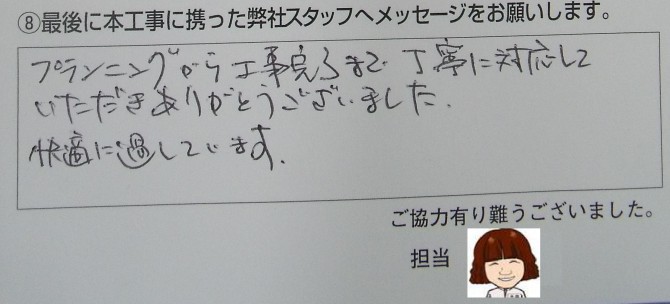 ⑧最後に本工事に携った弊社スタッフへメッセージをお願いします。
プランニングから工事完了まで 丁寧に対応して
いただきありがとうございました.
快適に過しています.
ご協力有り難うございました。
担当